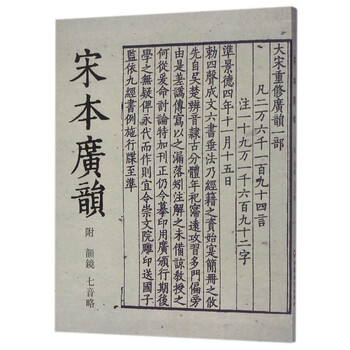 大宋重修廣韻一部
凡二万六千一百九十四言
注一十九万一千六百九十二字
準景德四年十一月十五日
勑四聲成文六書垂法乃經籍之資始寔簡冊之攸
先自吳楚辨音隷古分體年祀寖遠攻習多門偏旁
由是差譌傳寫以之漏落矧注解之未備諒教授之
何從爰命討論特加刋正仍令摹印用廣頒行期後
學之無疑俾永代而作則宜令崇文院雕印送國子
監依九經書例施行牒至準
宋本廣韻
附 韻鏡 七音略